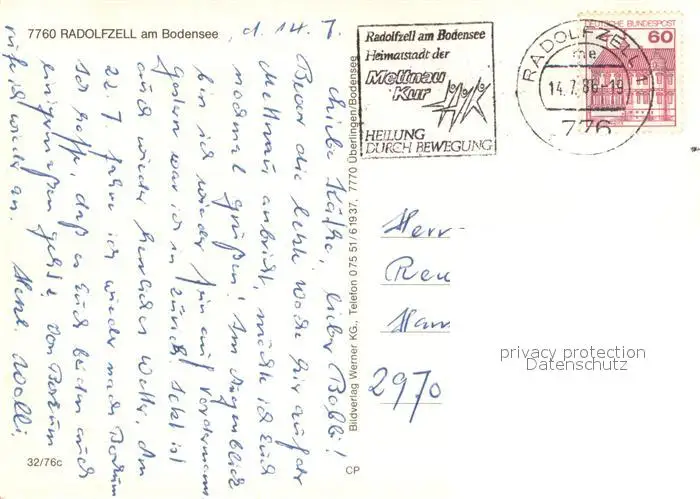 7760 RADOLFZELL am Bodensee
, d. 14. 7.
Liebe Käthe, lieber Bubbi!
Bevor die letzte Woche hier auf der
Mettnau anbricht, möchte ich Euch
nochmal grüßen! Im Augenblick
bin ich wieder fein auf Vordermann
Gestern war ich in Zürich. Jetzt ist
auch wieder herrliches Wetter. Am
22. 7. fahre ich wieder nach Borkum
Ich hoffe, daß es Euch beiden auch
einigermaßen geht! Von Borkum
rufe ich wieder an. Herzl. Walli.
32/76c
CP
Bildverlag Werner KG., Telefon 0 75 51 / 6 19 37, 7770 Überlingen/Bodensee
Radolfzell am Bodensee
Heimatstadt der
Mettnau
Kur
HEILUNG
DURCH BEWEGUNG
RADOLFZELL 1
me
14.7.86-19
776
DEUTSCHE BUNDESPOST
60
Herr
Reu
Ham
2970
privacy protection
Datenschutz